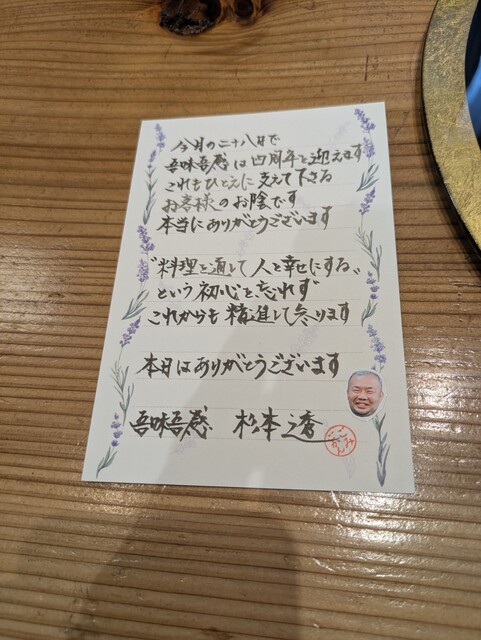 今月の二十八日で
吾味吾感は四周年を迎えます
これもひとえに支えて下さる
お客様のお陰です
本当にありがとうございます
"料理を通して人を幸せにする"
という初心を忘れず
これからも精進して参ります
本日はありがとうございます
吾味吾感 松本 透
ごみごかん